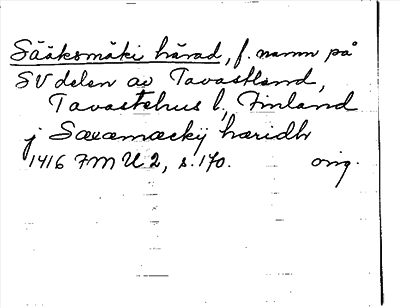 Sääksmäki härad, f. namn på
SV delen av Tavastland,
Tavastehus l, Finland
j Saxamæckij hæridh
1416 FMU 2, s. 170. orig.